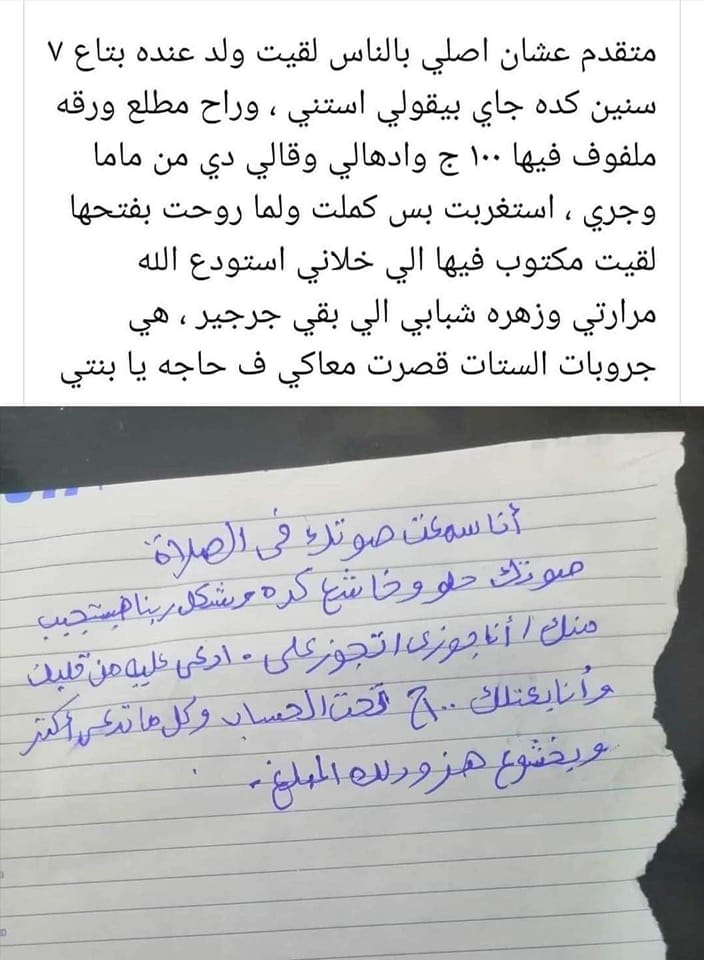 متقدم عشان اصلي بالناس لقيت ولد عنده بتاع ٧
سنين كده جاي بيقولي استني ، وراح مطلع ورقه
ملفوف فيها ١٠٠ ج وادهالي وقالي دي من ماما
وجري ، استغربت بس كملت ولما روحت بفتحها
لقيت مكتوب فيها الي خلاني استودع الله
مرارتي وزهره شبابي الي بقي جرجير ، هي
جروبات الستات قصرت معاكي ف حاجه يا بنتي
أنا سمعت صوتك فى الصلاة
صوتك حلو وخاشع كده وشكل ربنا هيستجيب
منك / أنا جوزى اتجوز على . ادعى عليه من قلبك
وأنا بعتلك ١٠٠ج تحت الحساب وكل ما تدعى أكتر
وبخشوع هزودلك المبلغ .